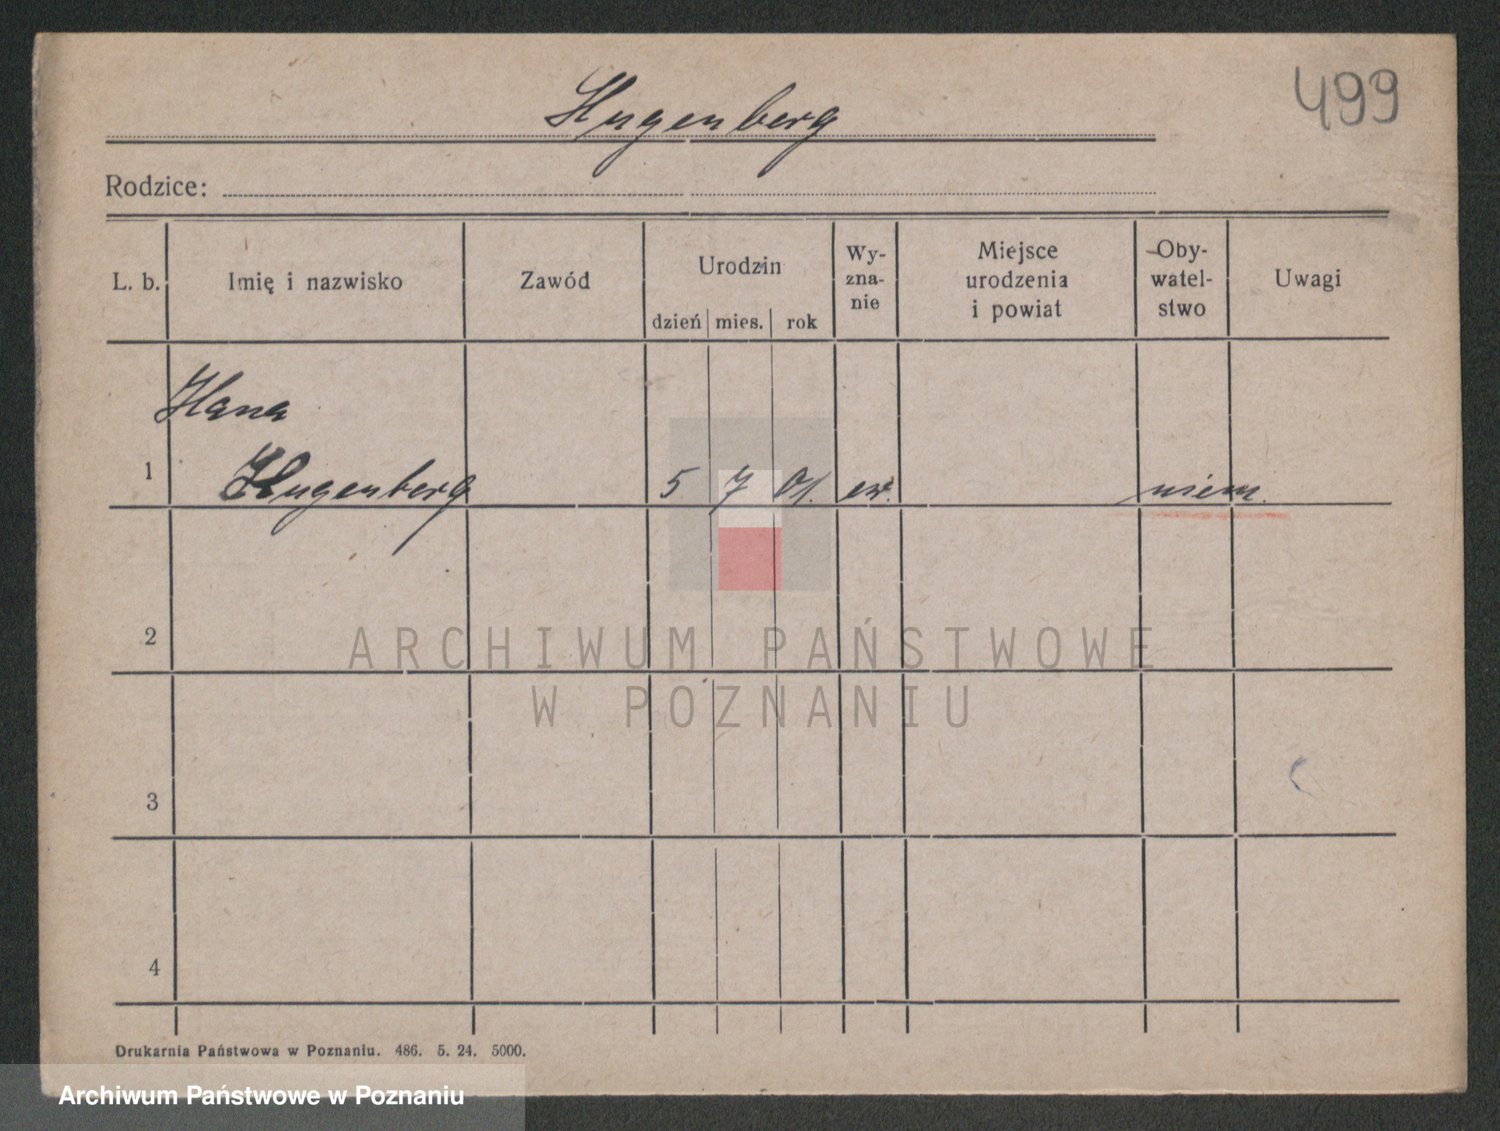 Hugenberg
499
Rodzice:
L. b.
Imię i nazwisko
Zawód
Urodzin
dzień
mies.
rok
Wy-
zna-
nie
Miejsce
urodzenia
i powiat
Oby-
watel-
stwo
Uwagi
Hana
1 Hugenberg 5 7 01. ew. niem.
2
ARCHIWUM PAŃSTWOWE
W POZNANIU
3
4
Drukarnia Państwowa w Poznaniu. 486. 5. 24. 5000.
Archiwum Państwowe w Poznaniu